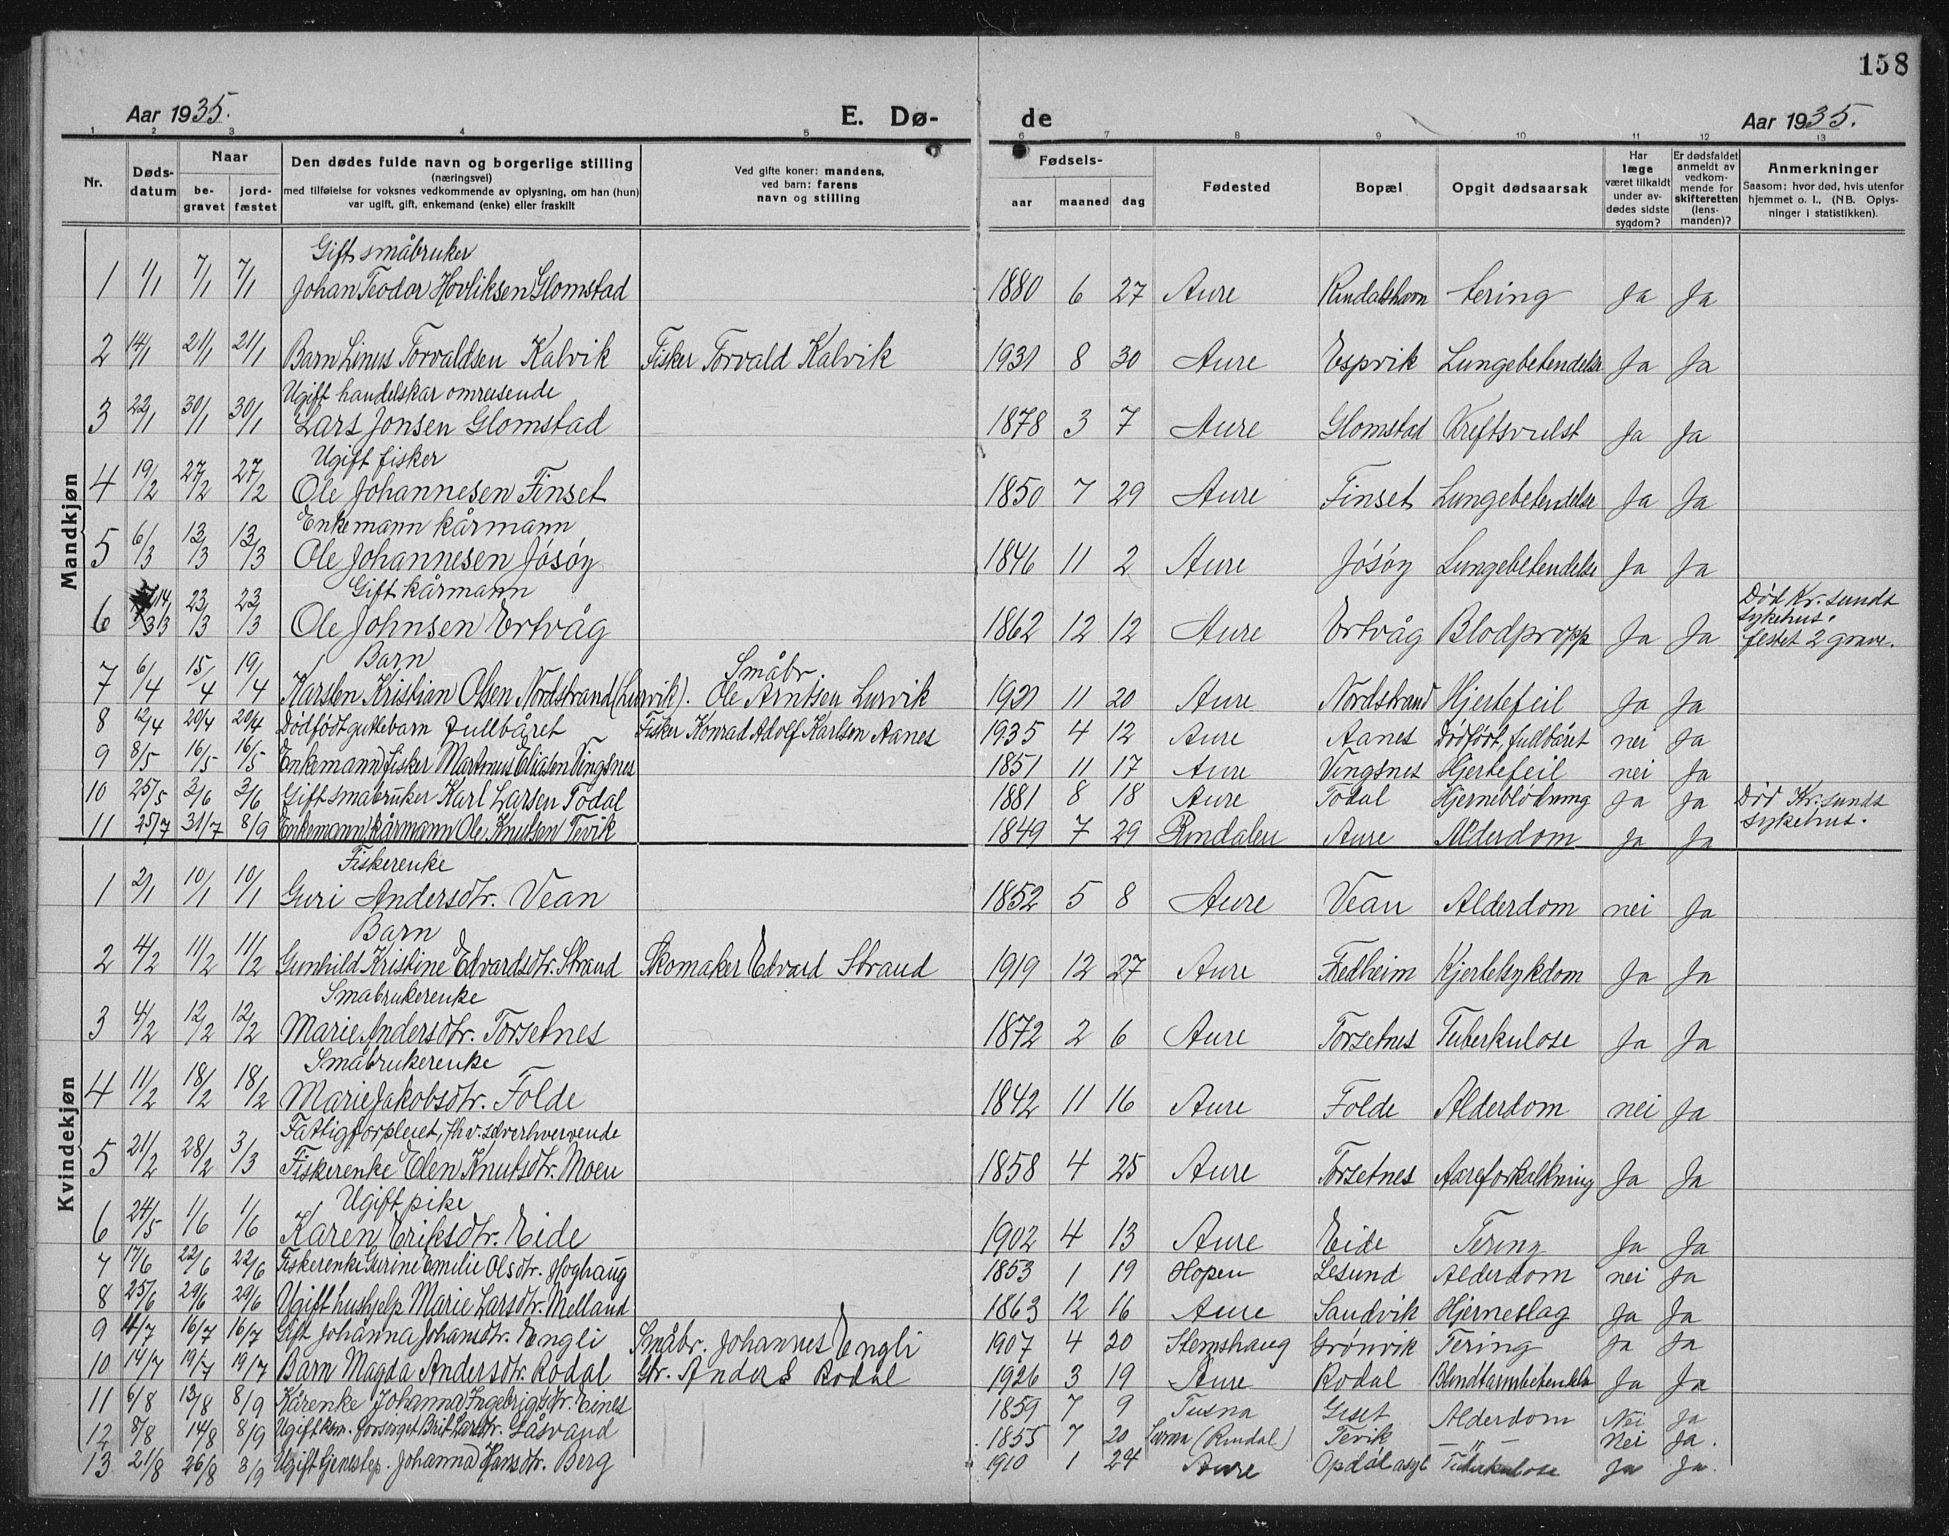 158
Aar 1935. E. Dø- de Aar 1935.
1 2 3 4 5 6 7 8 9 10 11 12 13
Nr. Døds-datum Naar be-gravet jord-fæstet Den dødes fulde navn og borgerlige stilling (næringsvei) med tilføielse for voksnes vedkommende av oplysning, om han (hun) var ugift, gift, enkemand (enke) eller fraskilt Ved gifte koner: mandens, ved barn: farens navn og stilling Fødsels- aar maaned dag Fødested Bopæl Opgit dødsaarsak Har læge været tilkaldt under av-dødes sidste sygdom? Er dødsfaldet anmeldt av vedkom-mende for skifteretten (lens-manden)? Anmerkninger Saasom: hvor død, hvis utenfor hjemmet o. l., (NB. Oplys-ninger i statistikken).
Mandkjøn
Gift småbruker
1 1/1 7/1 7/1 Johan Teodor Hovliksen Glomstad 1880 6 27 Aure Rindalshavn tering Ja Ja
2 14/1 21/1 21/1 Barn Linus Torvaldsen Kalvik Fisker Torvald Kalvik 1931 8 30 Aure Espvik Lungebetendelse Ja Ja
Ugift handelskar omreisende
3 22/1 30/1 30/1 Lars Jonsen Glomstad 1878 3 7 Aure Glomstad Kreftsvulst Ja Ja
Ugift fisker
4 19/2 27/2 27/2 Ole Johannesen Finset 1850 7 29 Aure Finset Lungebetendelse Ja Ja
Enkemann kårmann
5 6/3 13/3 13/3 Ole Johannesen Jøsøy 1846 11 2 Aure Jøsøy Lungebetendelse Ja Ja
Gift kårmann
6 14/3 23/3 23/3 Ole Johnsen Ertvåg 1862 12 12 Aure Ertvåg Blodpropp Ja Ja Død Kr.sunds sykehus. festet 2 grave.
Barn Småbr
7 6/4 15/4 19/4 Karsten Kristian Olsen Nordstrand (Lurvik). Ole Arntsen Lurvik 1931 11 20 Aure Nordstrand Hjertefeil Ja Ja
8 12/4 20/4 20/4 Dødfødt guttebarn fullbåret Fisker Konrad Adolf Karlsen Aanes 1935 4 12 Aure Aanes Dødfødt, fullbåret nei Ja
9 8/5 16/5 16/5 Enkemann fisker Martinus Eliasen Vingsnes 1851 11 17 Aure Vingsnes Hjertefeil nei Ja
10 25/5 3/6 3/6 Gift småbruker Karl Larsen Todal 1881 8 18 Aure Todal Hjerneblødning Ja Ja Død Kr.sunds sykehus.
11 25/7 31/7 8/9 Enkemann kårmann Ole Knutsen Tevik 1849 7 29 Rindalen Aure Alderdom Ja Ja
Kvindekjøn
Fiskerenke
1 2/1 10/1 10/1 Guri Andersdtr. Vean 1852 5 8 Aure Vean Alderdom nei Ja
Barn
2 4/2 11/2 11/2 Gunhild Kristine Edvardsdtr. Strand Skomaker Edvard Strand 1919 12 27 Aure Fredheim Kjertelsykdom Ja Ja
Småbrukerenke
3 4/2 12/2 12/2 Marie Andersdtr. Torsetnes 1872 2 6 Aure Torsetnes Tuberkulose Ja Ja
Småbrukerenke
4 11/2 18/2 18/2 Marie Jakobsdtr. Folde 1842 11 16 Aure Folde Alderdom nei Ja
Fattigforpleiet, fhv. selverhvervende
5 21/2 28/2 3/3 Fiskerenke Elen Knutsdtr. Moen 1858 4 25 Aure Torsetnes Aareforkalkning Ja Ja
Ugift pike
6 24/5 1/6 1/6 Karen Eriksdtr. Eide 1902 4 13 Aure Eide Tering Ja Ja
7 17/6 22/6 22/6 Fiskerenke Gurine Emilie Olsdtr. Hoghaug 1853 1 19 Hopen Lesund Alderdom nei Ja
8 25/6 29/6 29/6 Ugift hushjelp Marie Larsdtr. Melland 1863 12 16 Aure Sandvik Hjerneslag Ja Ja
9 11/7 16/7 16/7 Gift Johanna Johansdtr. Engli Småbr. Johannes Engli 1907 4 20 Stemshaug Grønvik Tering Ja Ja
10 14/7 19/7 19/7 Barn Magda Andersdtr. Rodal Gbr. Anders Rodal 1926 3 19 Aure Rodal Blindtarmbetendelse Ja Ja
11 6/8 13/8 8/9 Kårenke Johanna Ingebrigtsdtr. Eines 1859 7 9 Tusna Giset Alderdom Nei Ja
12 8/8 14/8 8/9 Ugift kom. forsørget Brit Larsdtr. Gåsvand 1855 7 20 (Rindal) Tevik — " — Nei Ja.
13 21/8 26/8 8/9 Ugift tjenestep. Johanna Hansdtr. Berg 1910 1 24 Aure Opdøl asyl Tuberkulose Ja Ja.